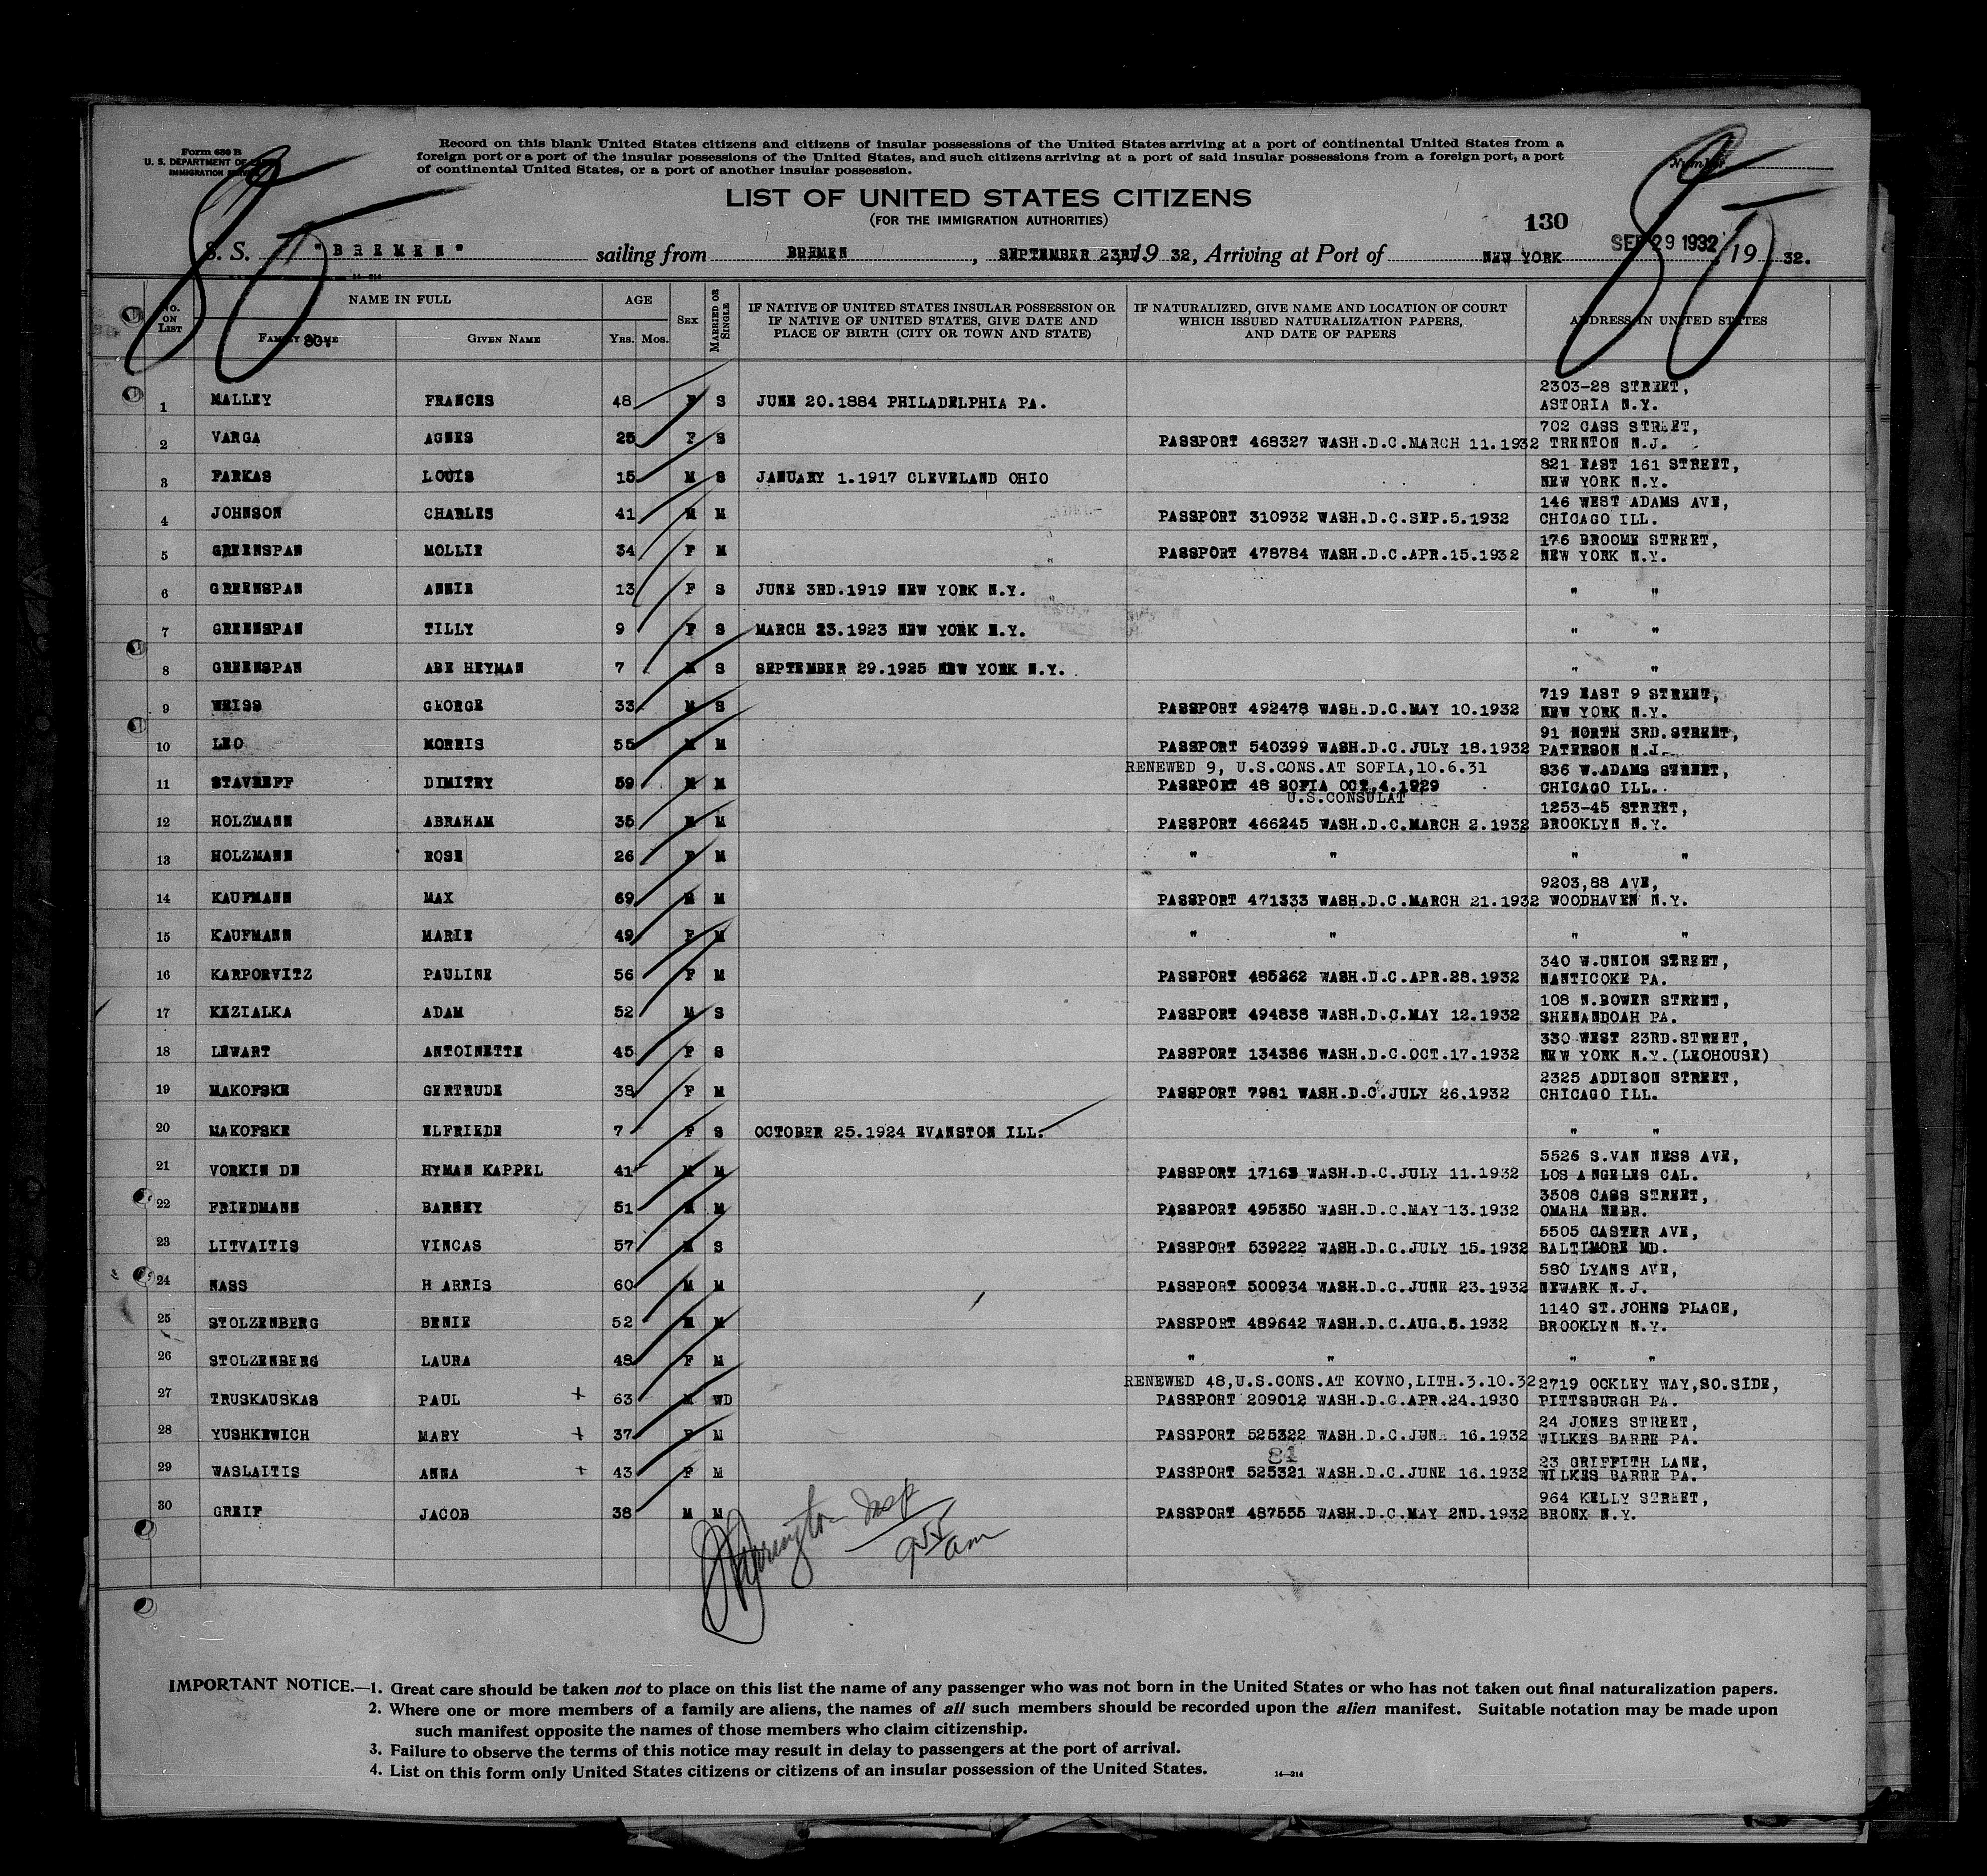 Form 630 B
U. S. DEPARTMENT OF
IMMIGRATION
Record on this blank United States citizens and citizens of insular possessions of the United States arriving at a port of continental United States from a
foreign port or a port of the insular possessions of the United States, and such citizens arriving at a port of said insular possessions from a foreign port, a port
of continental United States, or a port of another insular possession.
Number
85
85
LIST OF UNITED STATES CITIZENS
(FOR THE IMMIGRATION AUTHORITIES)
130
S. S. "BREMEN" sailing from BREMEN, SEPTEMBER 23RD. 19 32, Arriving at Port of NEW YORK SEP 29 1932 19 32.
No. ON LIST
NAME IN FULL
FAMILY NAME
GIVEN NAME
AGE
YRS. MOS.
SEX
MARRIED OR SINGLE
IF NATIVE OF UNITED STATES INSULAR POSSESSION OR
IF NATIVE OF UNITED STATES, GIVE DATE AND
PLACE OF BIRTH (CITY OR TOWN AND STATE)
IF NATURALIZED, GIVE NAME AND LOCATION OF COURT
WHICH ISSUED NATURALIZATION PAPERS,
AND DATE OF PAPERS
ADDRESS IN UNITED STATES
2303-28 STREET,
1 MALLEY FRANCES 48 F S JUNE 20.1884 PHILADELPHIA PA. ASTORIA N.Y.
702 CASS STREET,
2 VARGA AGNES 25 F S PASSPORT 468327 WASH.D.C.MARCH 11.1932 TRENTON N.J.
821 EAST 161 STREET,
3 FARKAS LOUIS 15 M S JANUARY 1.1917 CLEVELAND OHIO NEW YORK N.Y.
146 WEST ADAMS AVE,
4 JOHNSON CHARLES 41 M M PASSPORT 310932 WASH.D.C.SEP.5.1932 CHICAGO ILL.
176 BROOME STREET,
5 GREENSPAN MOLLIE 34 F M PASSPORT 478784 WASH.D.C.APR.15.1932 NEW YORK N.Y.
6 GREENSPAN ANNIE 13 F S JUNE 3RD.1919 NEW YORK N.Y. " "
7 GREENSPAN TILLY 9 F S MARCH 23.1923 NEW YORK N.Y. " "
8 GREENSPAN ABE HEYMAN 7 M S SEPTEMBER 29.1925 NEW YORK N.Y. " "
719 EAST 9 STREET,
9 WEISS GEORGE 33 M S PASSPORT 492478 WASH.D.C.MAY 10.1932 NEW YORK N.Y.
91 NORTH 3RD.STREET,
10 LEO MORRIS 55 M M PASSPORT 540399 WASH.D.C.JULY 18.1932 PATERSON N.J.
RENEWED 9, U.S.CONS.AT SOFIA,10.6.31 836 W.ADAMS STREET,
11 STAVREFF DIMITRY 59 M M PASSPORT 48 SOFIA OCT.4.1929 CHICAGO ILL.
U.S.CONSULAT 1253-45 STREET,
12 HOLZMANN ABRAHAM 35 M M PASSPORT 466245 WASH.D.C.MARCH 2.1932 BROOKLYN N.Y.
13 HOLZMANN ROSE 26 F M " " " "
9203,88 AVE,
14 KAUFMANN MAX 69 M M PASSPORT 471333 WASH.D.C.MARCH 21.1932 WOODHAVEN N.Y.
15 KAUFMANN MARIE 49 F M " " " "
340 W.UNION STREET,
16 KARPORVITZ PAULINE 56 F M PASSPORT 485262 WASH.D.C.APR.28.1932 NANTICOKE PA.
108 N.BOWER STREET,
17 KEZIALKA ADAM 52 M S PASSPORT 494838 WASH.D.C.MAY 12.1932 SHENANDOAH PA.
330 WEST 23RD.STREET,
18 LEWART ANTOINETTE 45 F S PASSPORT 134386 WASH.D.C.OCT.17.1932 NEW YORK N.Y.(LEOHOUSE)
2325 ADDISON STREET,
19 MAKOFSKE GERTRUDE 38 F M PASSPORT 7981 WASH.D.C.JULY 26.1932 CHICAGO ILL.
20 MAKOFSKE ELFRIEDE 7 F S OCTOBER 25.1924 EVANSTON ILL. " "
5526 S.VAN NESS AVE,
21 VORKIN DE HYMAN KAPPEL 41 M M PASSPORT 17163 WASH.D.C.JULY 11.1932 LOS ANGELES CAL.
3508 CASS STREET,
22 FRIEDMANN BARNEY 51 M M PASSPORT 495350 WASH.D.C.MAY 13.1932 OMAHA NEBR.
5505 CASTER AVE,
23 LITVAITIS VINCAS 57 M S PASSPORT 539222 WASH.D.C.JULY 15.1932 BALTIMORE MD.
580 LYANS AVE,
24 NASS H ARRIS 60 M M PASSPORT 500934 WASH.D.C.JUNE 23.1932 NEWARK N.J.
1140 ST.JOHNS PLACE,
25 STOLZENBERG BENIE 52 M M PASSPORT 489642 WASH.D.C.AUG.5.1932 BROOKLYN N.Y.
26 STOLZENBERG LAURA 48 F M " " " "
RENEWED 48,U.S.CONS.AT KOVNO,LITH.3.10.32 2719 OCKLEY WAY,SO.SIDE,
27 TRUSKAUSKAS PAUL + 63 M WD PASSPORT 209012 WASH.D.C.APR.24.1930 PITTSBURGH PA.
24 JONES STREET,
28 YUSHKEWICH MARY + 37 F M PASSPORT 525322 WASH.D.C.JUNE 16.1932 WILKES BARRE PA.
81 23 GRIFFITH LANE,
29 WASLAITIS ANNA + 43 F M PASSPORT 525321 WASH.D.C.JUNE 16.1932 WILKES BARRE PA.
964 KELLY STREET,
30 GREIF JACOB 38 M M PASSPORT 487555 WASH.D.C.MAY 2ND.1932 BRONX N.Y.
Insp
am
IMPORTANT NOTICE.—1. Great care should be taken not to place on this list the name of any passenger who was not born in the United States or who has not taken out final naturalization papers.
2. Where one or more members of a family are aliens, the names of all such members should be recorded upon the alien manifest. Suitable notation may be made upon
such manifest opposite the names of those members who claim citizenship.
3. Failure to observe the terms of this notice may result in delay to passengers at the port of arrival.
4. List on this form only United States citizens or citizens of an insular possession of the United States.
14—214